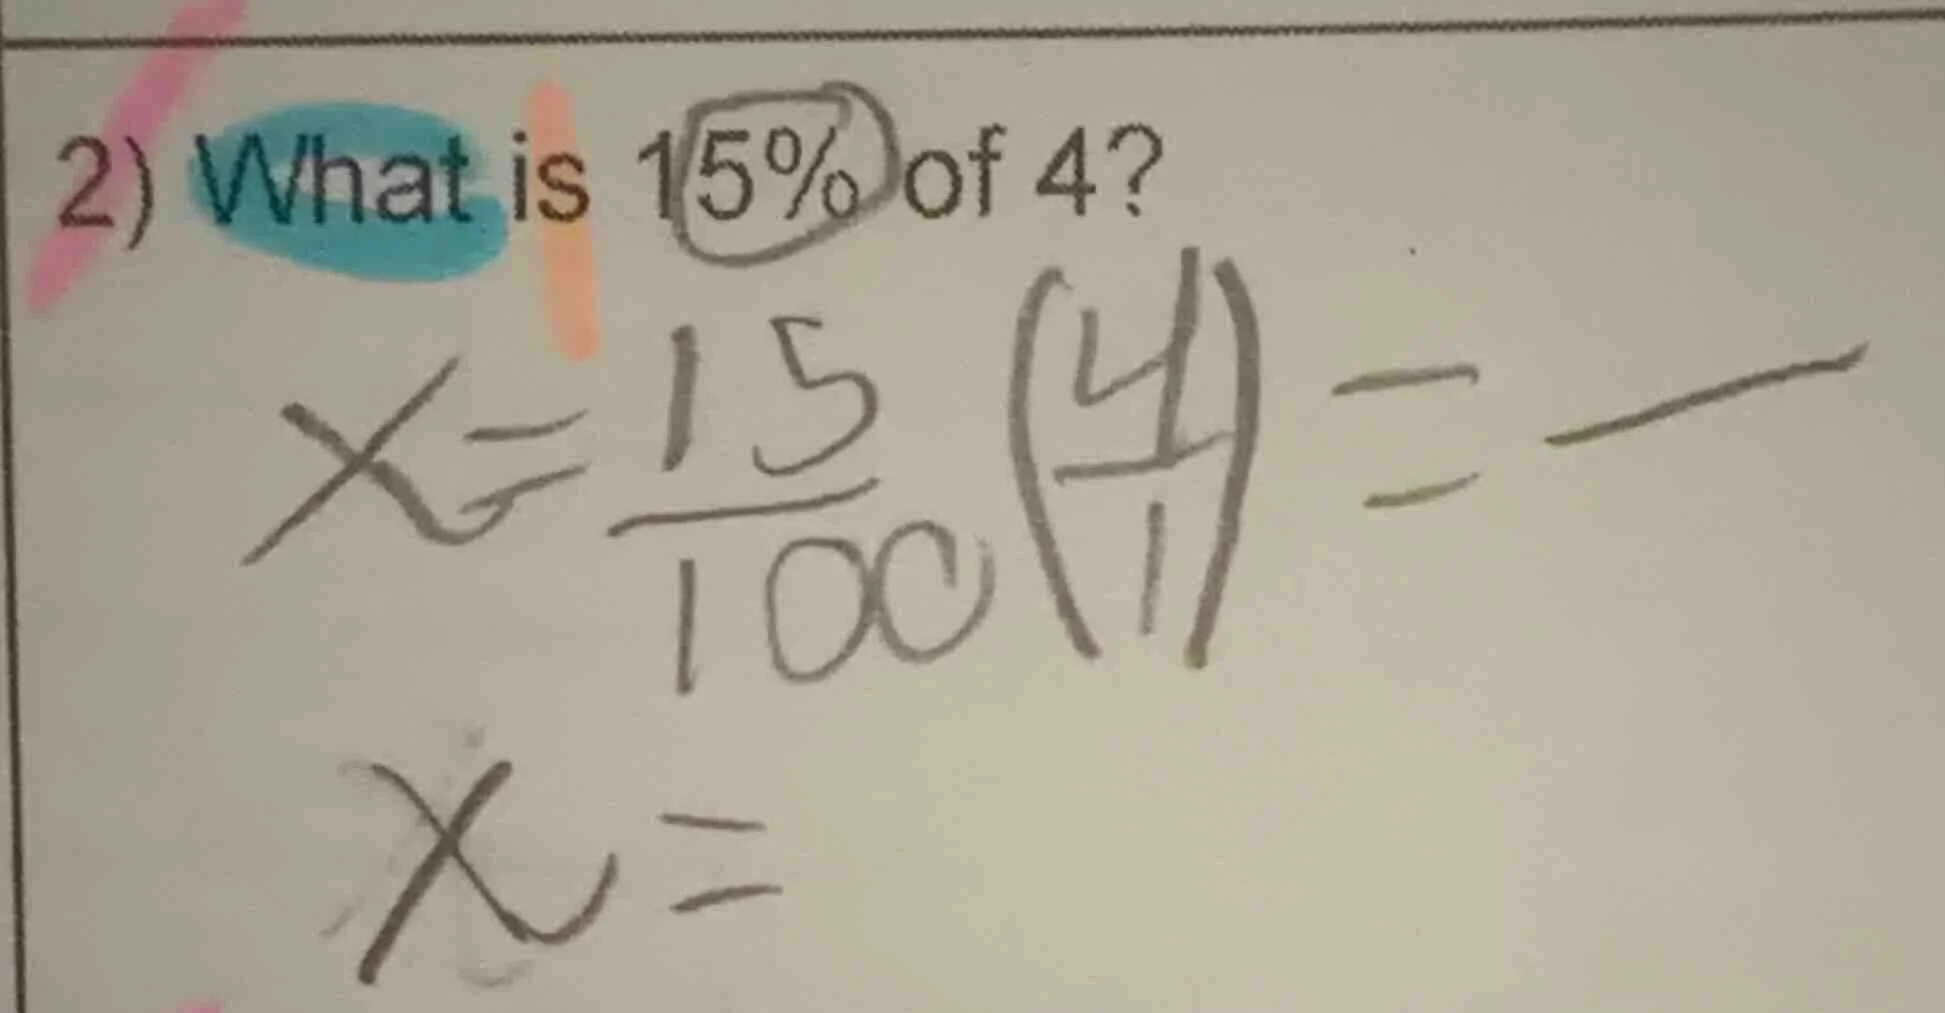 2) What is 15% of 4?
x = 15/100 (4/1) = —
x =